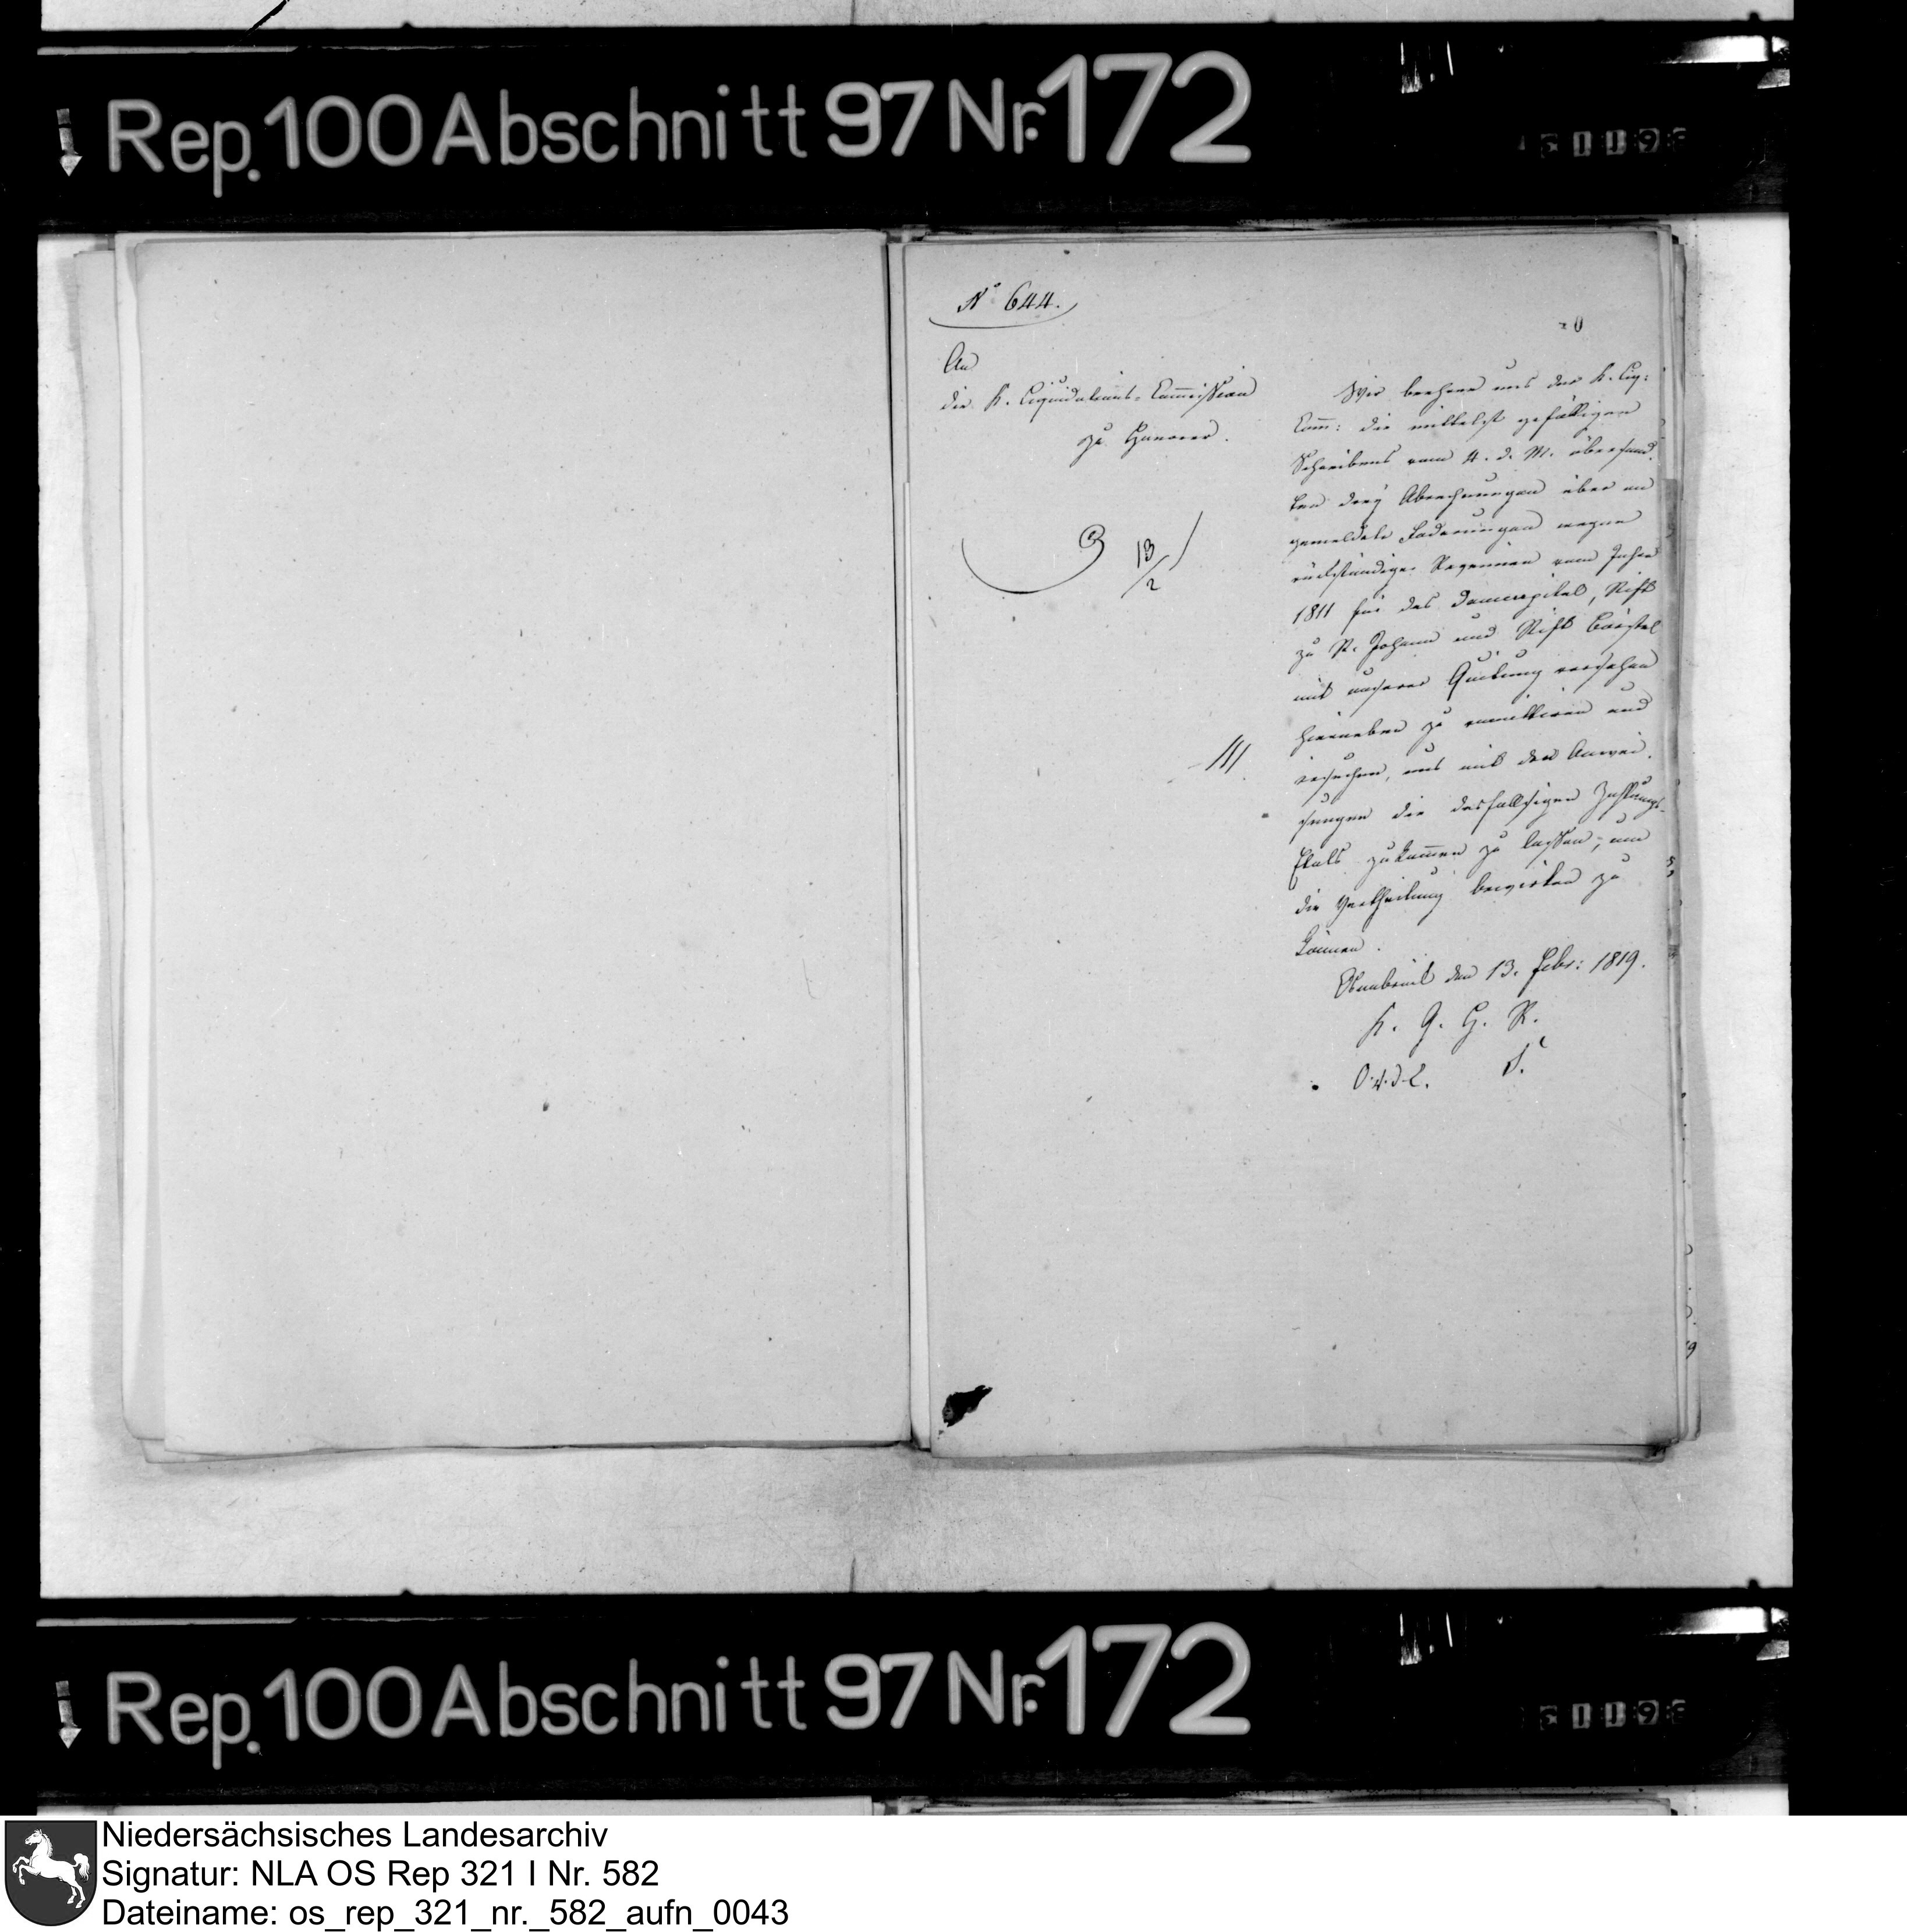 Rep. 100 Abschnitt 97 Nr. 172
N° 644.
An
die K. Liquidations-Commission
zu Hanover.
13/2
Wir beehren uns der K. Liq:
Com̅: die mittelst gefälligen
Schreibens vom 4. d. M. übersand-
ten drey Abrechnungen über an
gemeldete Foderungen wegen
rückständiger Revenüen vom Jahre
1811 für das Domcapitel, Stift
zu St. Johann und Stift Börstel
mit unserer Quitung versehen
hierneben zu remittiren und
///
ersuchen, uns mit den Anwei-
sungen die desfallsigen Zahlungs-
Etats zukom̅en zu lassen, um
die Vertheilung bewirken zu
können.
Osnabrück den 13. Febr: 1819.
K. G. H. R.
O. v. d. L. S.
Rep. 100 Abschnitt 97 Nr. 172
Niedersächsisches Landesarchiv
Signatur: NLA OS Rep 321 I Nr. 582
Dateiname: os_rep_321_nr._582_aufn_0043